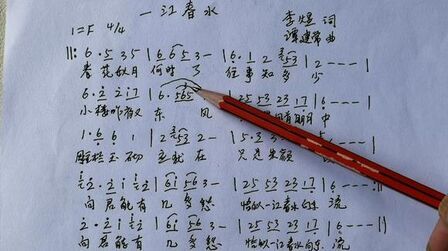 一江春水
1=F 4/4 李煜 词
谭建常 曲
||: 6·5 3 5 | 6 6 5 3 - | 6·1 2 3 5 3 | 2 - - - |
春花秋月 何时了 往事知多少
6·2 2 1 7 | 6·5 6 5 | 2 5 5 3 2 3 1 7 | 6 - - -
小楼昨夜又东风 中
1·6 6 1 | 2 3 5 3 2 - | 5·3
雕栏玉砌 应犹在 只是朱颜
2·2 1 2 | 6 1 5 6 3 - | 2 5 5 3 2 3 1 7 | 6 - - - :||
问君能有几多愁 恰似一江春水向东流
2·2 1 2 | 6 1 5 6 3 - | 2 5 5 3 2 3 1 7 | 6 - - - ||
问君能有几多愁 恰似一江春水向东流